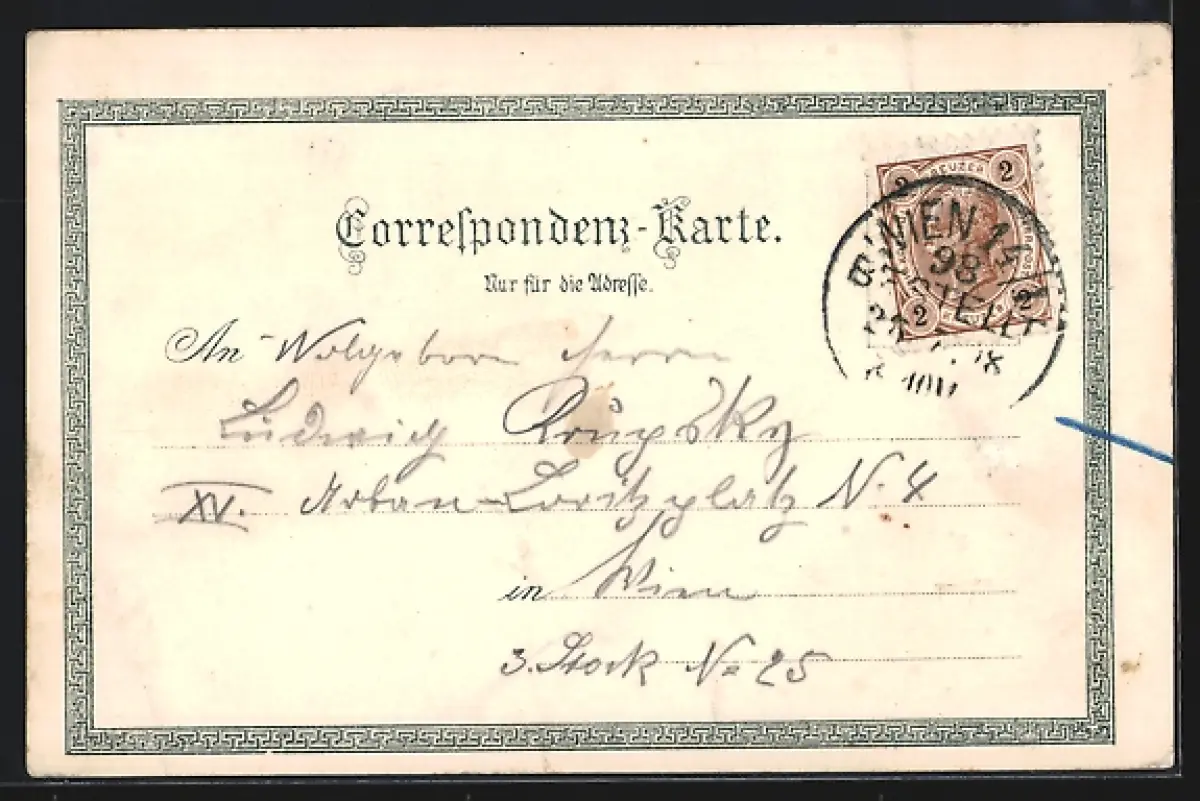 Correspondenz-Karte.
Nur für die Adresse.
2 2
2 2
WIEN 14
98
An Wolgeborn Herrn
Ludwig
XV. Urban-Loritzplatz N. 4
in Wien
3. Stock No 25